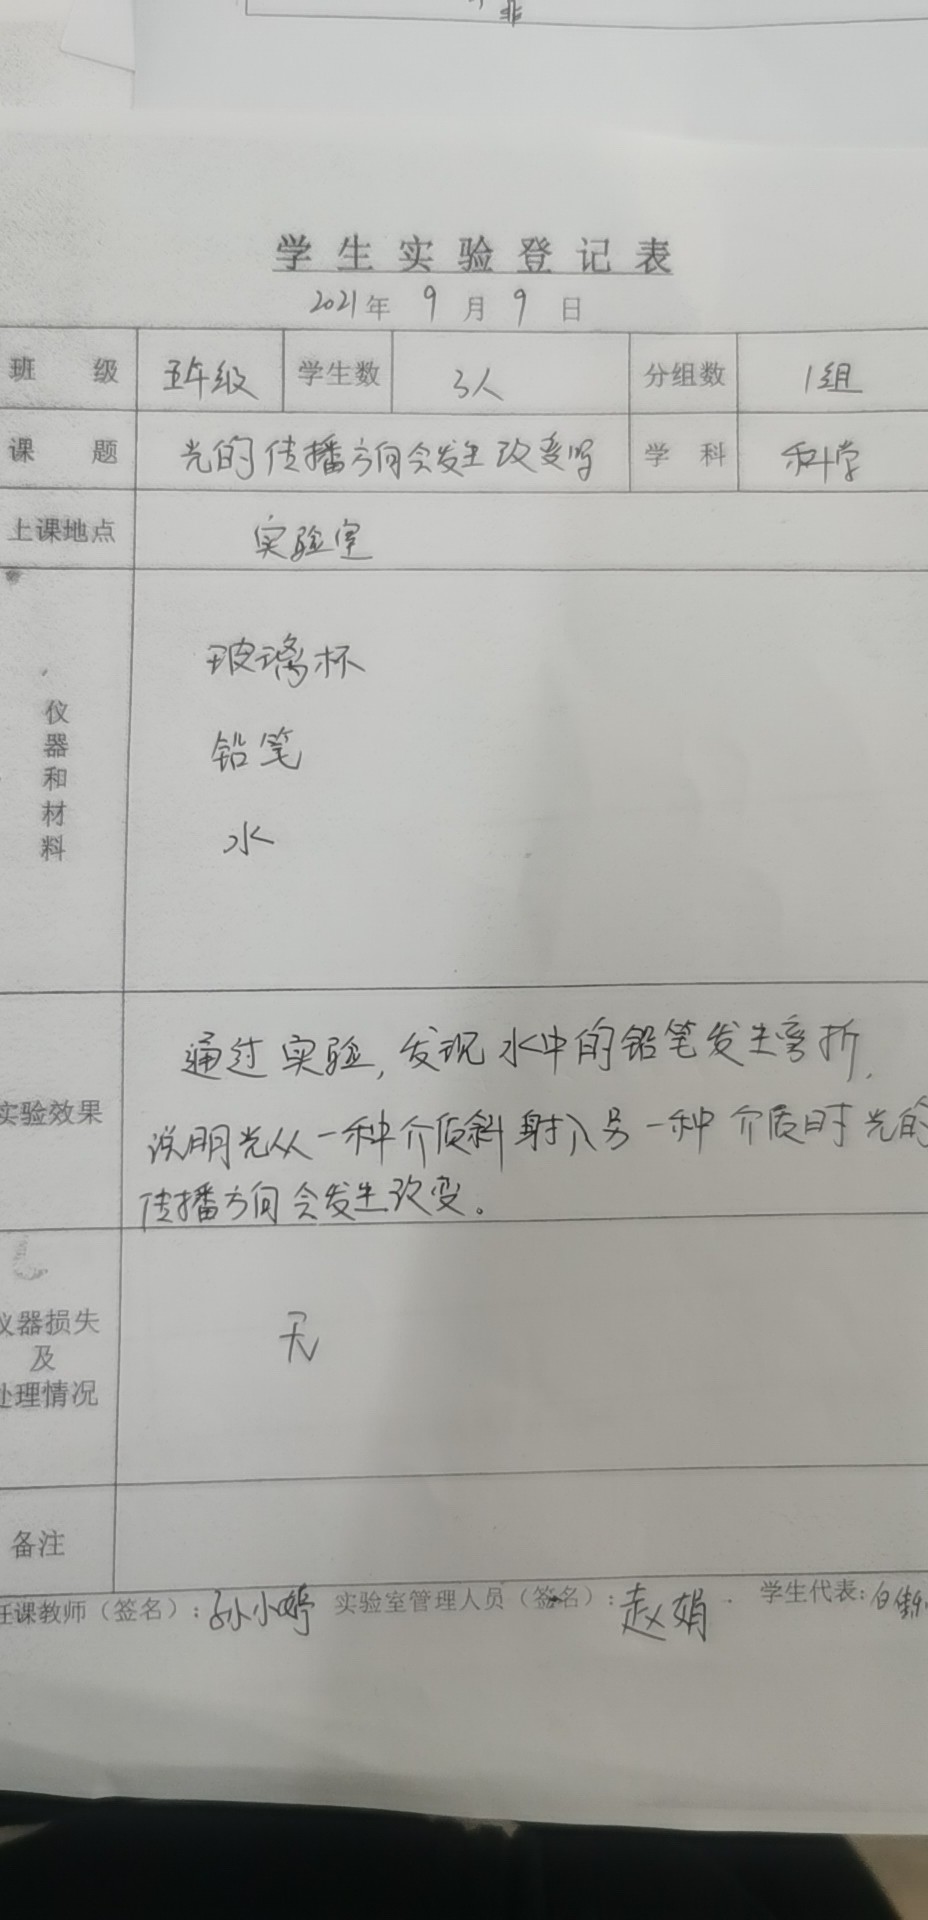 非
学生实验登记表
2021年 9月 9日
班 级 五年级 学生数 3人 分组数 1组
课 题 光的传播方向会发生改变吗 学 科 科学
上课地点 实验室
仪器和材料
玻璃杯
铅笔
水
实验效果
通过实验,发现水中的铅笔发生弯折,
说明光从一种介质斜射入另一种介质时光的
传播方向会发生改变。
仪器损失
及
处理情况
无
备注
任课教师(签名):孙小婷 实验室管理人员(签名):赵娟 学生代表:白